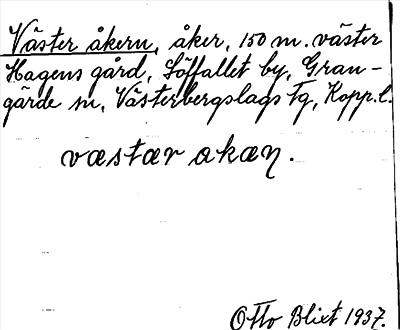 Väster åkern, åker, 150 m. väster
Hagens gård, Löffallet by, Gran-
gärde sn, Västerbergslags Tg, Kopp.l.
væstær akæɳ.
Otto Blixt 1937.